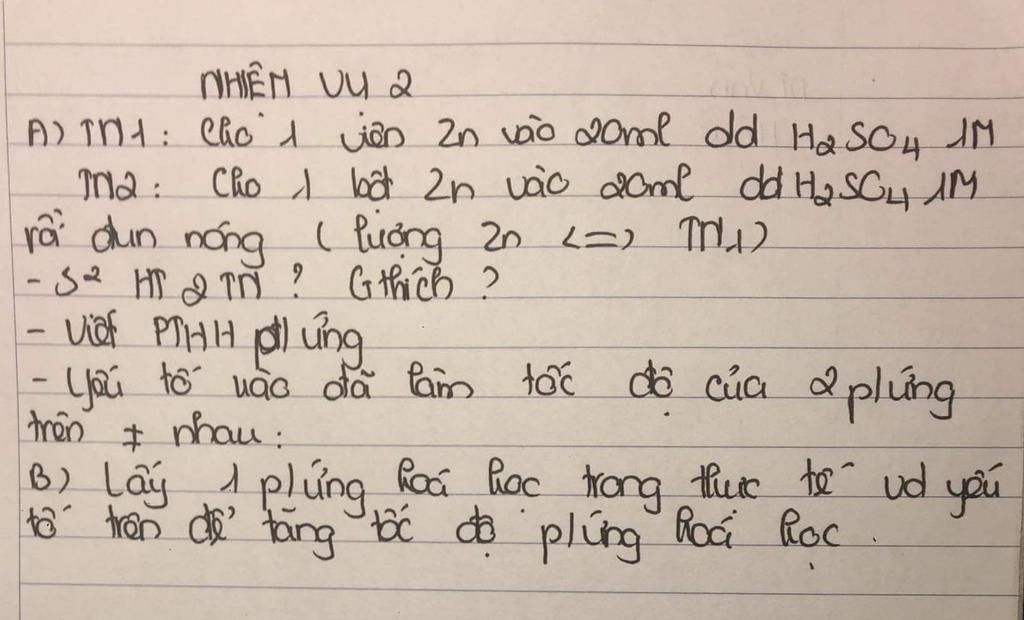 NHIỆM VỤ 2
A) TN1: Cho 1 viên Zn vào 20ml dd H₂SO₄ 1M
TN2: Cho 1 bột Zn vào 20ml dd H₂SO₄ 1M
rồi đun nóng ( lượng Zn <=> TN1)
- S² HT 2 TN ? Gthích ?
- Viết PTHH p/ứng
- Yếu tố nào đã làm tốc độ của 2 p/ứng
trên ≠ nhau :
B) Lấy 1 p/ứng hoá học trong thực tế vd yếu
tố trên để tăng tốc độ p/ứng hoá học .